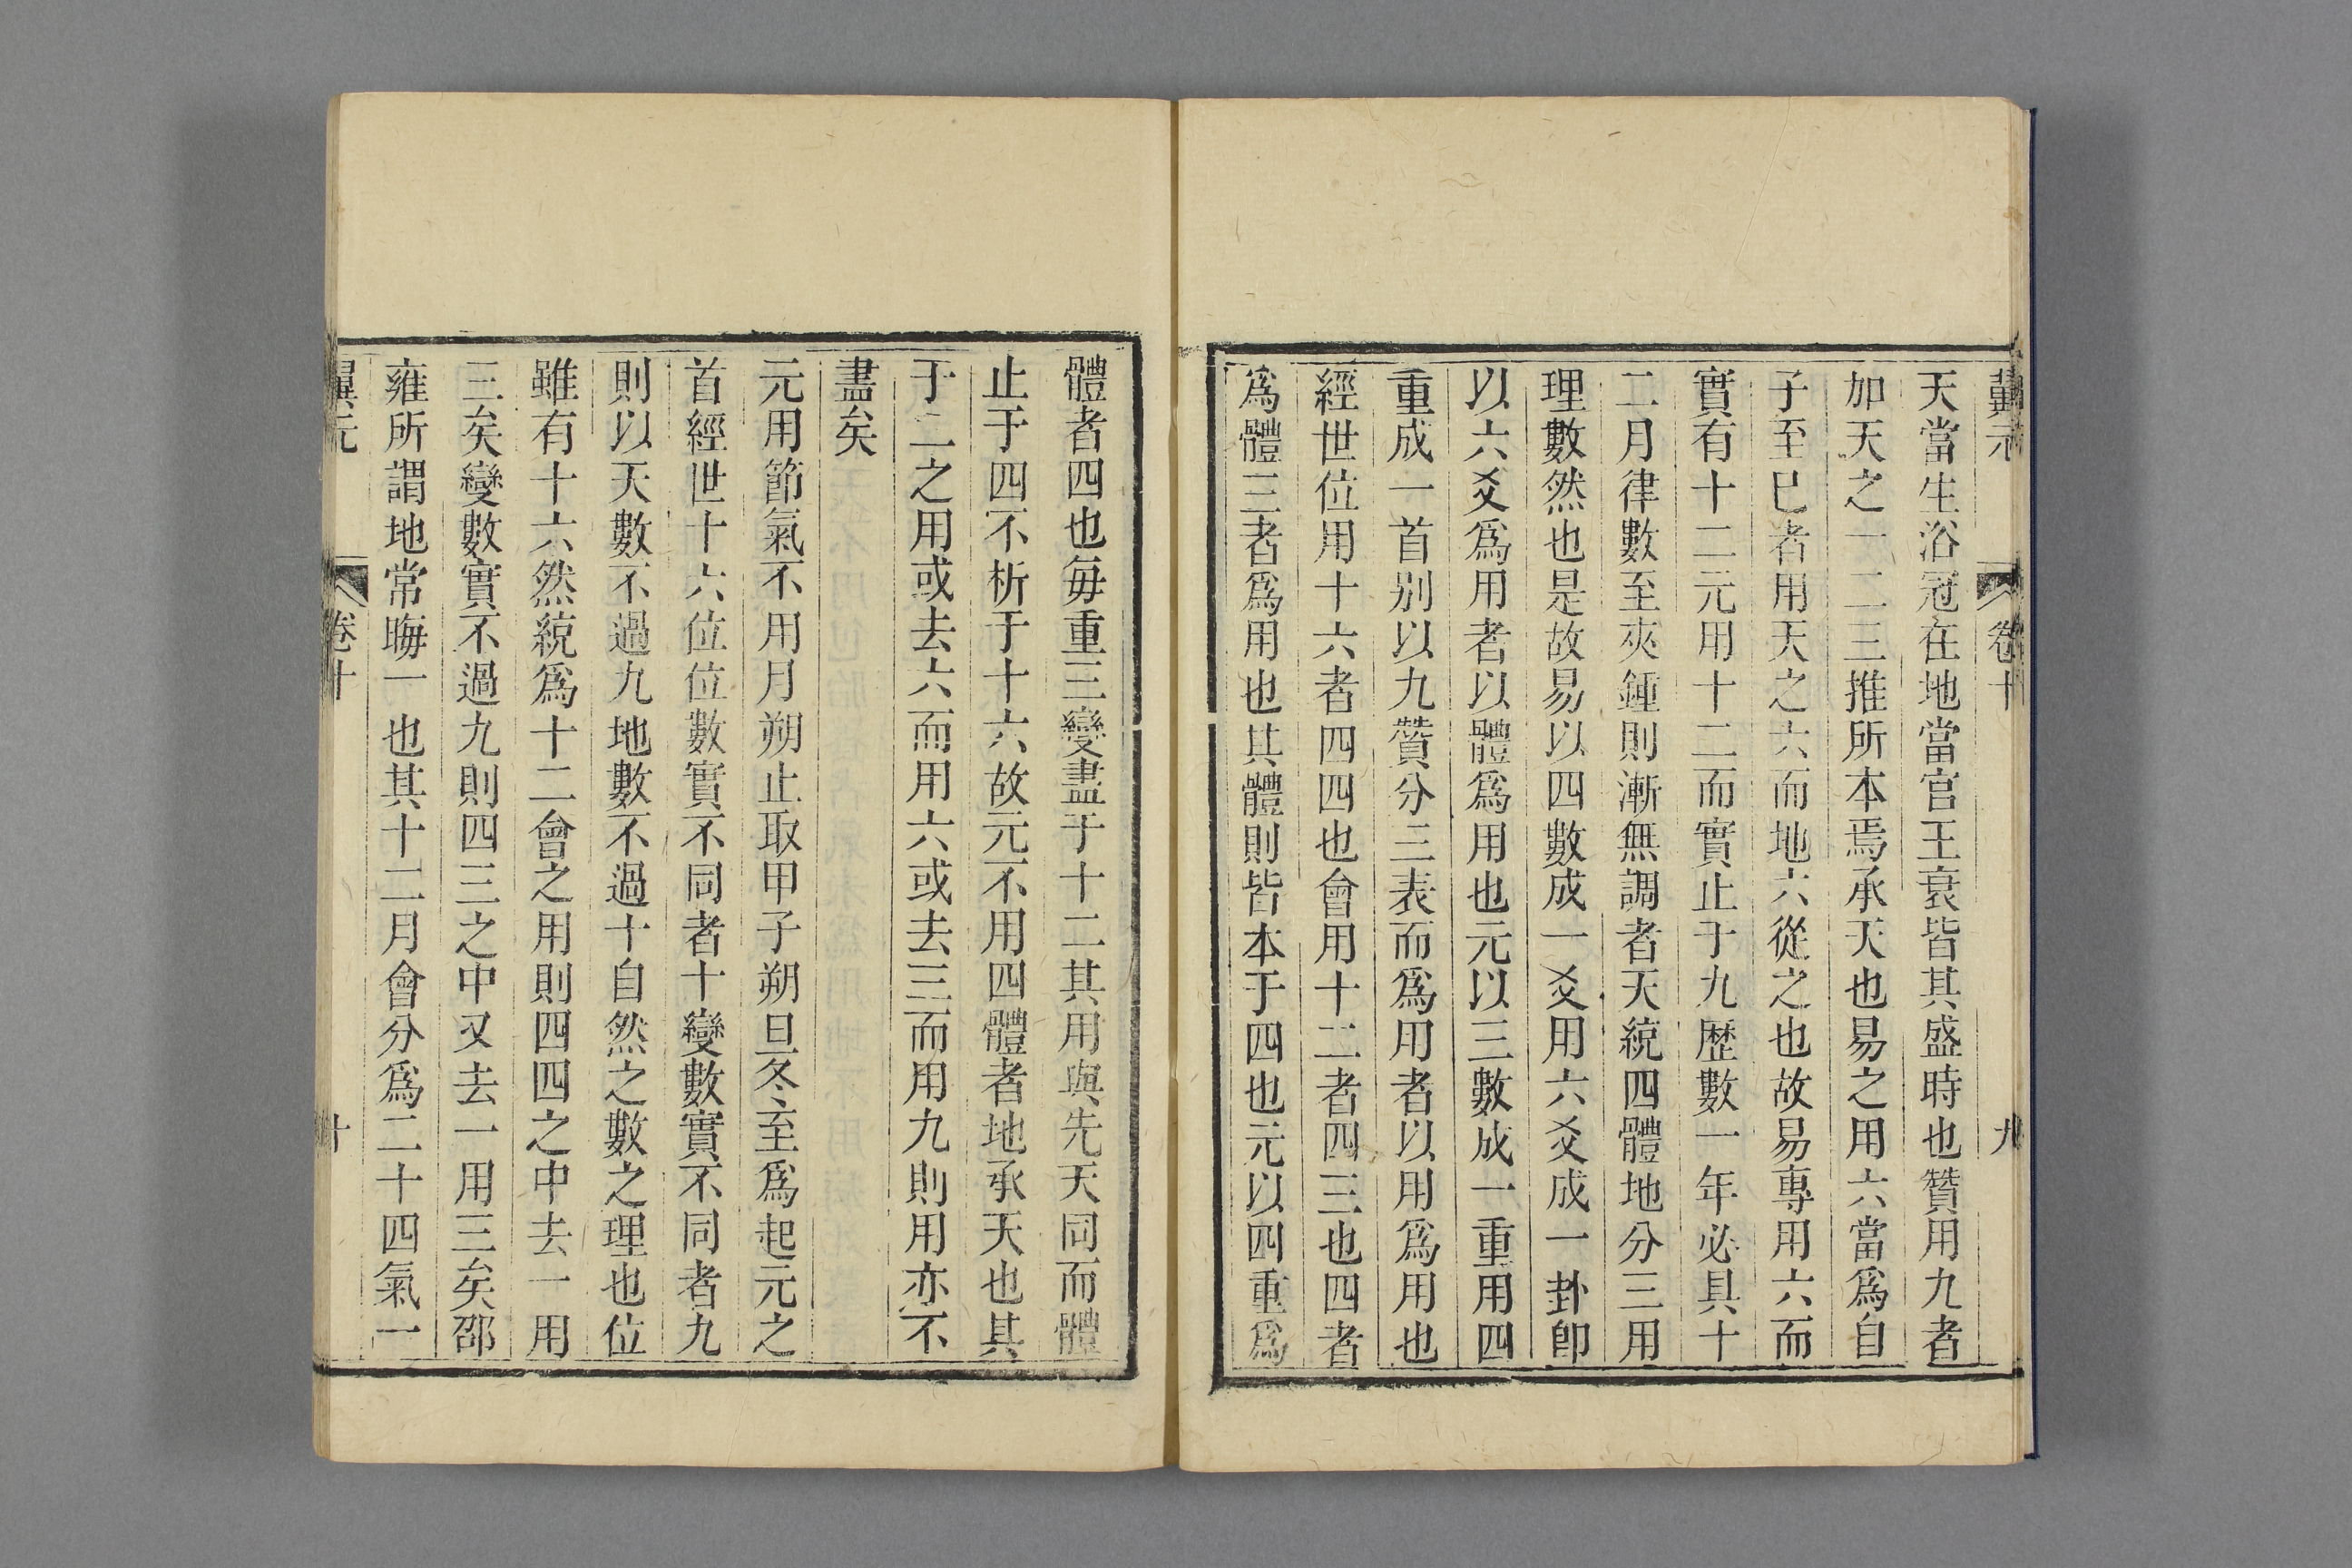 翼元 卷十 九
天當生浴冠在地當官王衰皆其盛時也贊用九者
加天之一二三推所本焉承天也易之用六當爲自
子至巳者用天之六而地六從之也故易專用六而
實有十二元用十二而實止于九歷數一年必具十
二月律數至夾鍾則漸無調者天統四體地分三用
理數然也是故易以四數成一爻用六爻成一卦卽
以六爻爲用者以體爲用也元以三數成一重用四
重成一首别以九贊分三表而爲用者以用爲用也
經世位用十六者四四也會用十二者四三也四者
爲體三者爲用也其體則皆本于四也元以四重爲
體者四也每重三變盡于十二其用與先天同而體
止于四不析于十六故元不用四體者地承天也其
于二之用或去六而用六或去三而用九則用亦不
盡矣
元用節氣不用月朔止取甲子朔旦冬至爲起元之
首經世十六位位數實不同者十變數實不同者九
則以天數不過九地數不過十自然之數之理也位
雖有十六然統爲十二會之用則四四之中去一用
三矣變數實不過九則四三之中又去一用三矣邵
雍所謂地常晦一也其十二月會分爲二十四氣一
翼元 卷十 十